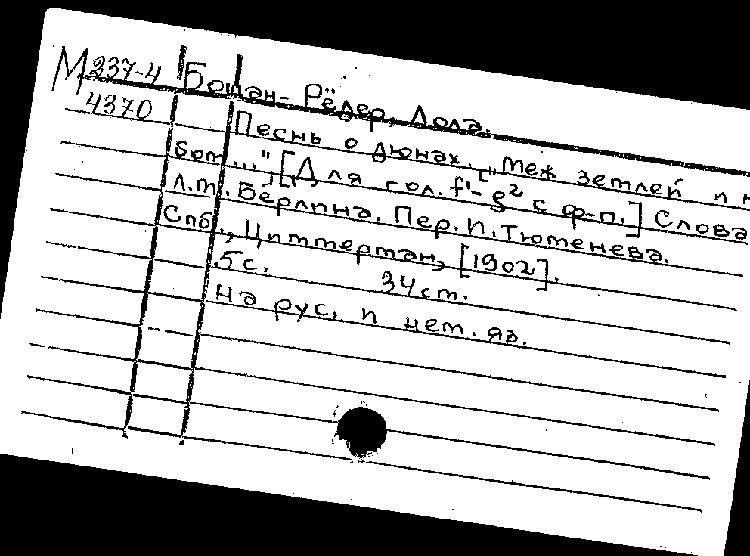 М 237-4 Бошан-Рёдер, Лола.
4370
Песнь о дюнах. ["Меж землей и н
бом...", [Для гол. f'-g² с ф-п.] Слова
Л.т. Берлина. Пер. И. Тютенева.
Спб., Циммерман, [1902].
5 с. 34 ст.
На рус. и нем. яз.